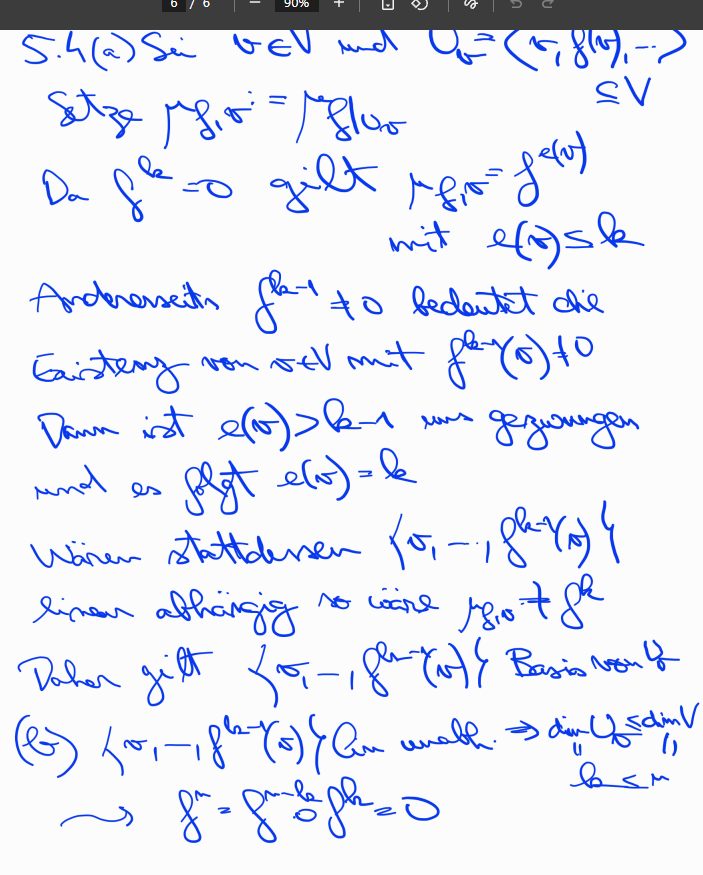 6 / 6 — 90% +
5.4(a) Sei v∈V und U_v = ⟨v, f(v), …⟩
≤ V
Setze μ_{f,v} := μ_{f|U_v}
Da f^k = 0 gilt μ_{f,v} = f^{e(v)}
mit e(v) ≤ k
Andererseits f^{k-1} ≠ 0 bedeutet die
Existenz von v∈V mit f^{k-1}(v) ≠ 0
Dann ist e(v) > k-1 gezwungen
und es folgt e(v) = k
Wären stattdessen {v, –, f^{k-1}(v)}
linear abhängig so wäre μ_{f,v} ≠ f^k
Daher gilt {v, –, f^{k-1}(v)} Basis von U
(b) {v, –, f^{k-1}(v)} lin unabh. ⇒ dim U_v ≤ dim V
k ≤ n
⇝ f^n = f^{n-k} ∘ f^k = 0